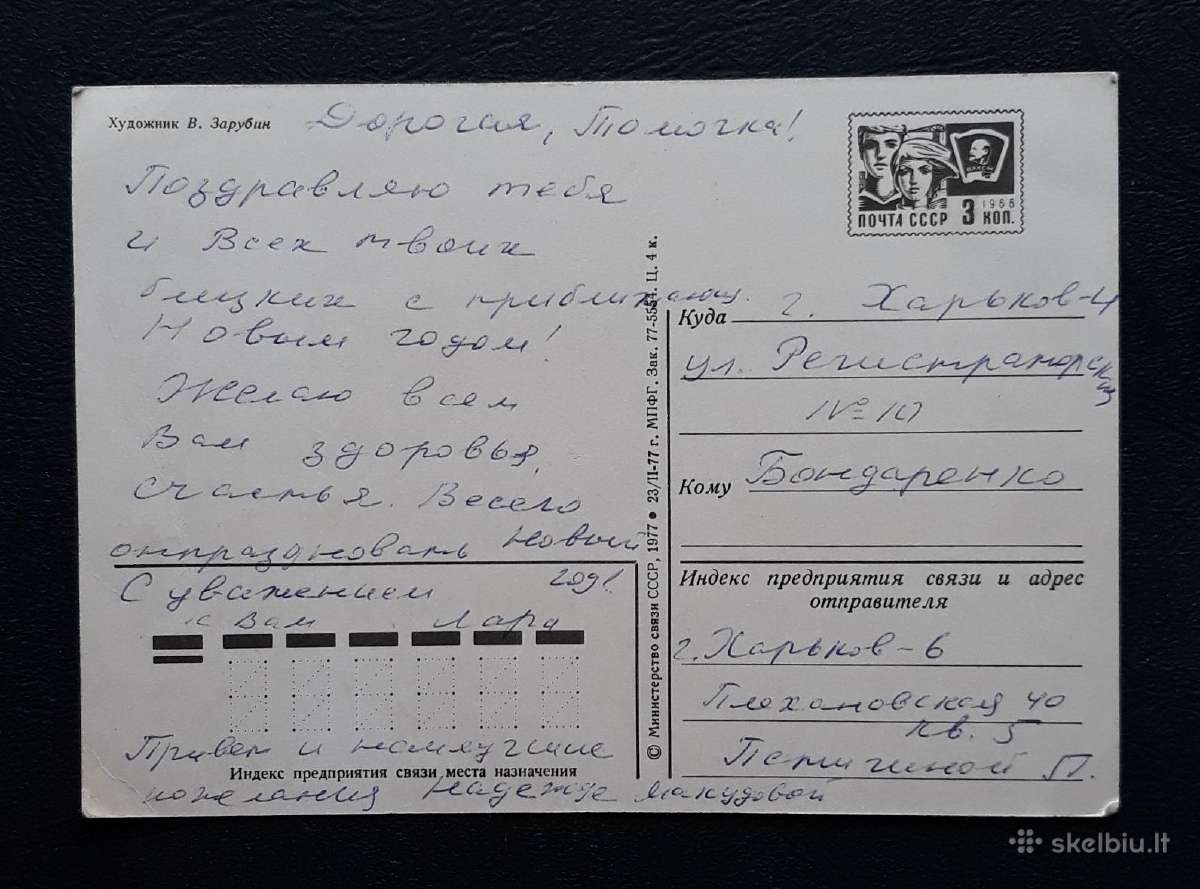 Художник В. Зарубин
Дорогая, Томочка!
Поздравляю тебя
и Всех твоих
близких с приближающ.
Новым годом!
Желаю всем
Вам здоровья,
счастья. Весело
отпраздновать Новый
год!
С уважением
к Вам Лара
Привет и наилучшие
Индекс предприятия связи места назначения
пожелания Надежде
© Министерство связи СССР, 1977 • 23/II-77 г. МПФГ. Зак. 77-5554. Ц. 4 к.
ВЛКСМ
1966
ПОЧТА СССР 3 КОП.
Куда г. Харьков-4
ул. Регистраторская
№ 10
Кому Бондаренко
Индекс предприятия связи и адрес
отправителя
г. Харьков-6
Плехановская 40
кв. 5
П.
skelbiu.lt